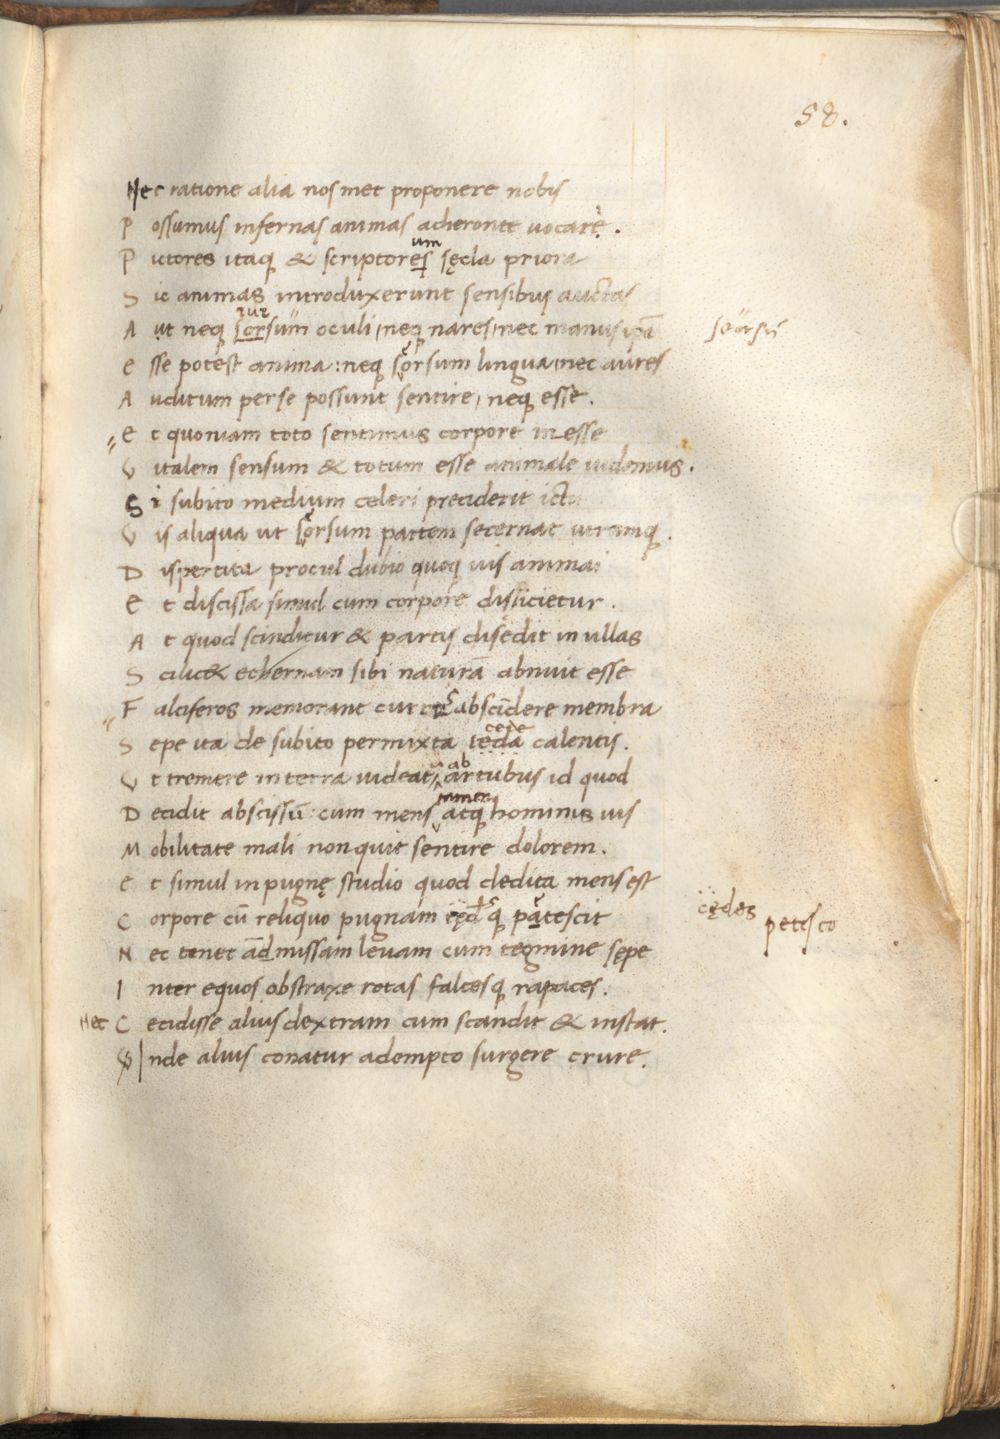 58.
Nec ratione alia nosmet proponere nobis
P ossumus infernas animas acheronte vocare.
um
P ictores itaq & scriptores sęcla priora
S ic animas introduxerunt sensibus auctas
rur
A ut neq sorsum oculi, neq nares, nec manus ipā seorsū
E sse potest anima: neq sorsum lingua, nec aures
A uditum per se possunt sentire, neq esse.
E t quoniam toto sentimus corpore inesse
V italem sensum & totum esse animale uidemus.
S i subito medium celeri preciderit ictu
V is aliqua ut sorsum partem secernat utramq.
D ispertita procul dubio quoq uis animai
E t discissa simul cum corpore disiicietur.
A t quod scinditur & partis discedit in ullas
S cilic& echernam sibi naturā abnuit esse
F alciferos memorant currus abscidere membra
cede
S epe ita de subito permixta tęda calentis.
ab
V t tremere in terra uideat artubus id quod
D ecidit abscissū: cum mens atq hominis uis
M obilitate mali non quit sentire dolorem.
E t simul in pugnę studio quod dedita mens est
C orpore cū reliquo pugnam q patescit cędes petisco
N ec tenet ādmissam levam cum tegmine sępe
I nter equos obstraxe rotas falcesq rapaces.
Nec C ecidisse alius dextram cum scandit & instat.
I nde alius conatur adempto surgere crure.